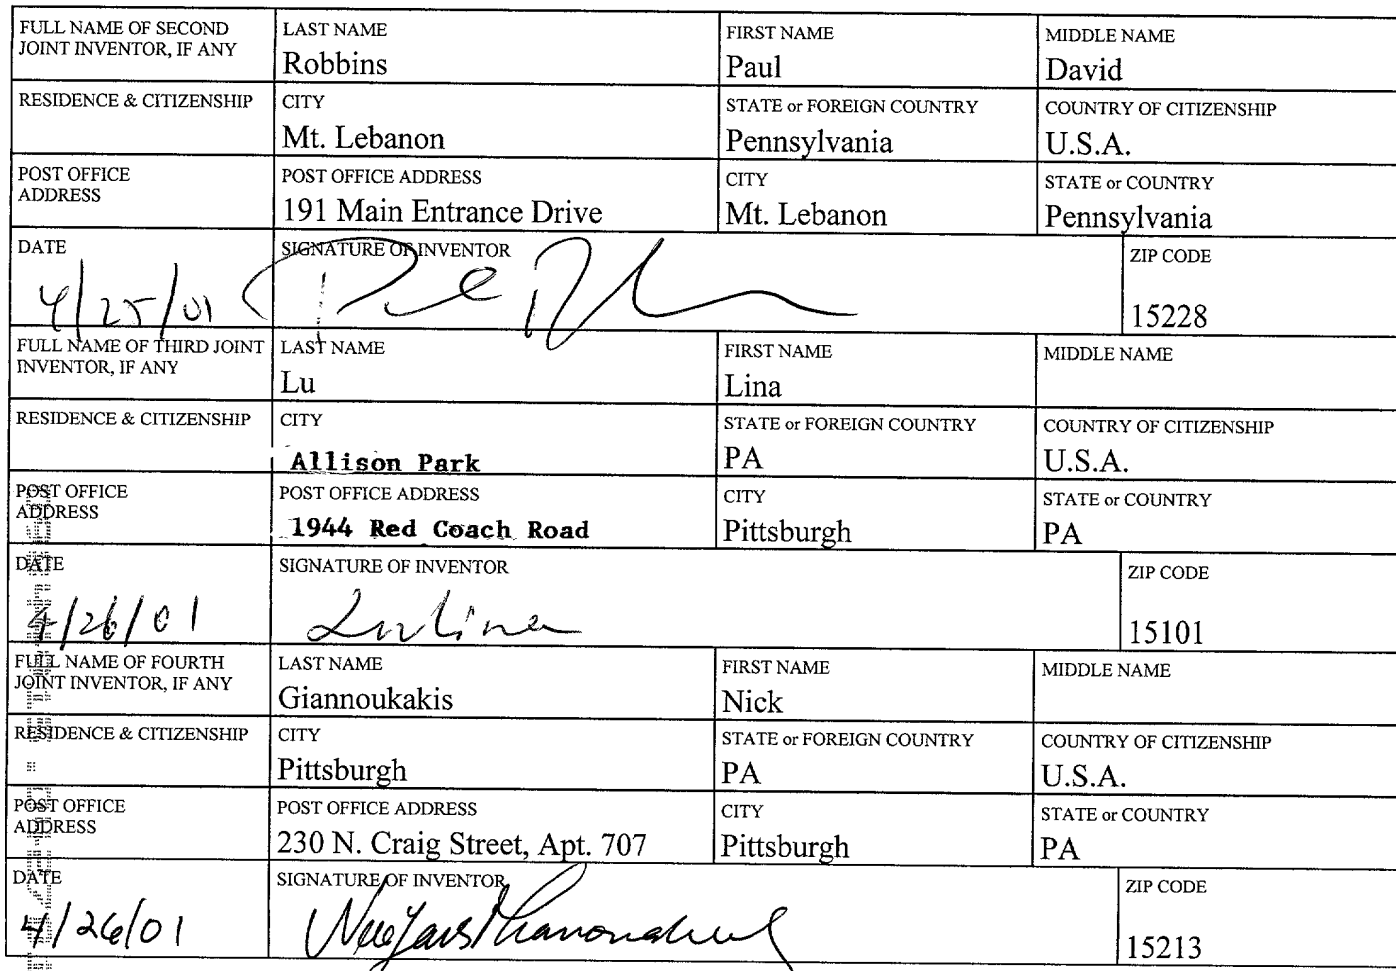 FULL NAME OF SECOND JOINT INVENTOR, IF ANY
LAST NAME
Robbins
FIRST NAME
Paul
MIDDLE NAME
David
RESIDENCE & CITIZENSHIP
CITY
Mt. Lebanon
STATE or FOREIGN COUNTRY
Pennsylvania
COUNTRY OF CITIZENSHIP
U.S.A.
POST OFFICE ADDRESS
POST OFFICE ADDRESS
191 Main Entrance Drive
CITY
Mt. Lebanon
STATE or COUNTRY
Pennsylvania
DATE
4/25/01
SIGNATURE OF INVENTOR
ZIP CODE
15228
FULL NAME OF THIRD JOINT INVENTOR, IF ANY
LAST NAME
Lu
FIRST NAME
Lina
MIDDLE NAME
RESIDENCE & CITIZENSHIP
CITY
Allison Park
STATE or FOREIGN COUNTRY
PA
COUNTRY OF CITIZENSHIP
U.S.A.
POST OFFICE ADDRESS
POST OFFICE ADDRESS
1944 Red Coach Road
CITY
Pittsburgh
STATE or COUNTRY
PA
DATE
4/26/01
SIGNATURE OF INVENTOR
Lu Lina
ZIP CODE
15101
FULL NAME OF FOURTH JOINT INVENTOR, IF ANY
LAST NAME
Giannoukakis
FIRST NAME
Nick
MIDDLE NAME
RESIDENCE & CITIZENSHIP
CITY
Pittsburgh
STATE or FOREIGN COUNTRY
PA
COUNTRY OF CITIZENSHIP
U.S.A.
POST OFFICE ADDRESS
POST OFFICE ADDRESS
230 N. Craig Street, Apt. 707
CITY
Pittsburgh
STATE or COUNTRY
PA
DATE
4/26/01
SIGNATURE OF INVENTOR
ZIP CODE
15213